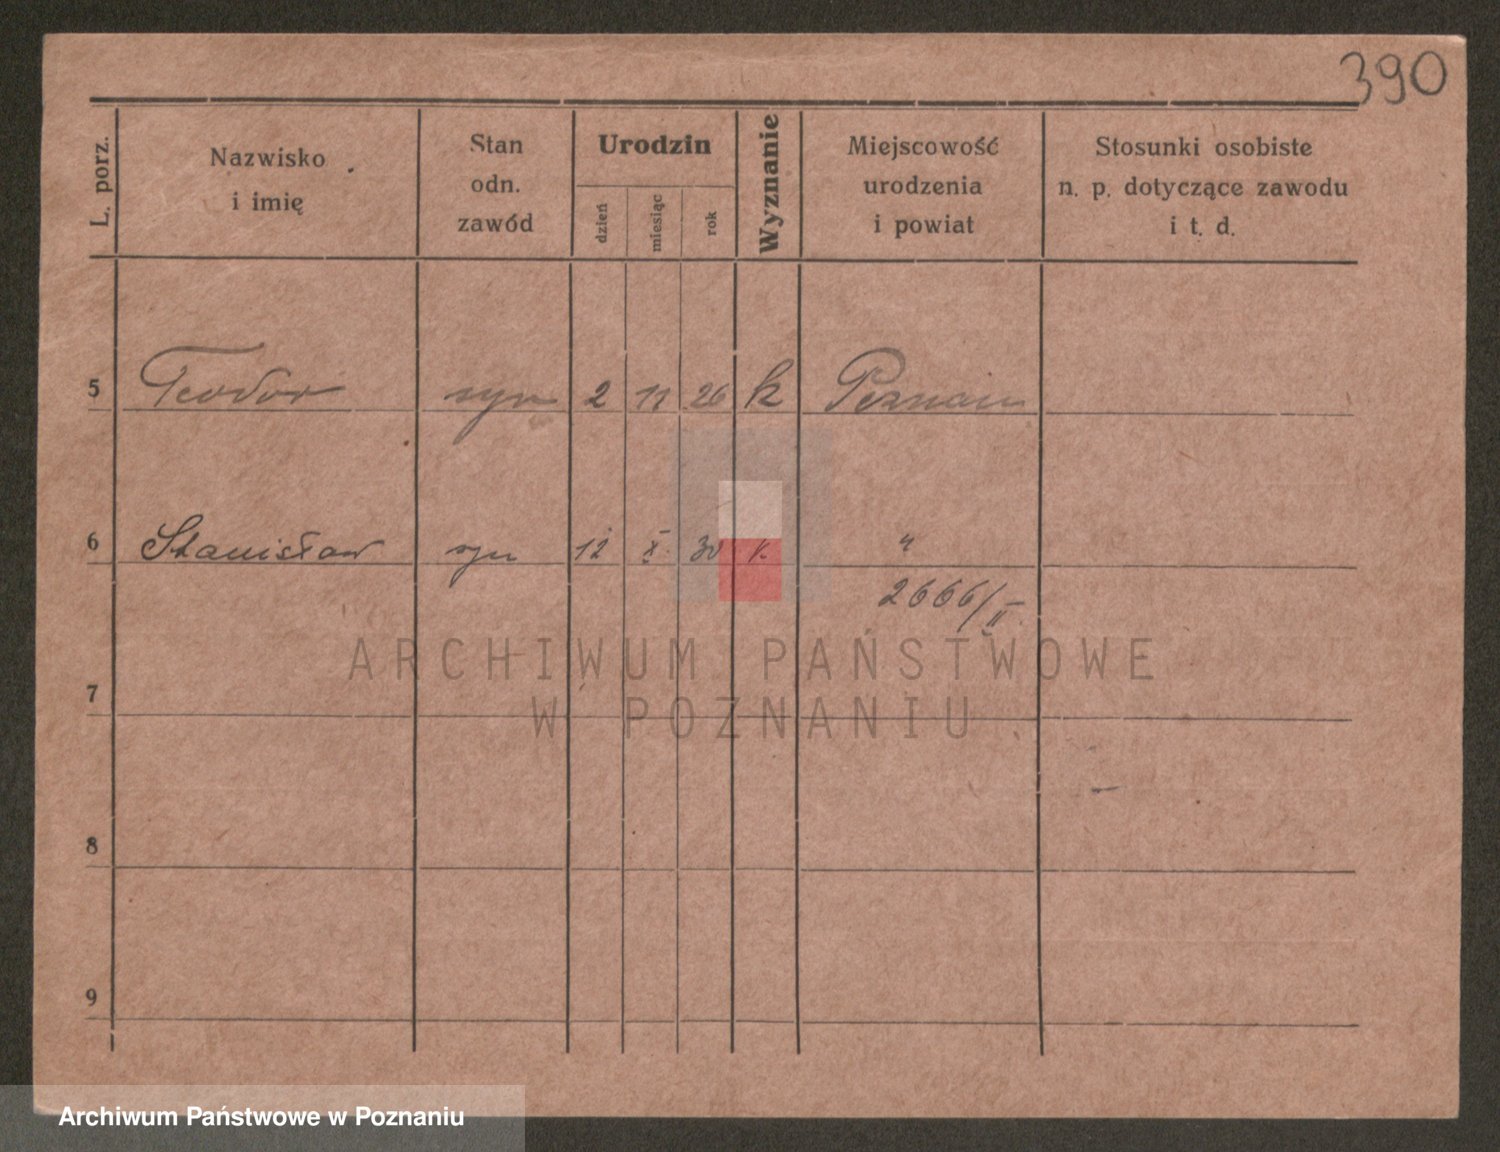 390
L. porz.
Nazwisko
i imię
Stan
odn.
zawód
Urodzin
dzień
miesiąc
rok
Wyznanie
Miejscowość
urodzenia
i powiat
Stosunki osobiste
n. p. dotyczące zawodu
i t. d.
5 Teodor syn 2 11 26 k Poznań
6 Stanisław syn 12 X. 30 k. "
2666/II.
7
8
9
ARCHIWUM PAŃSTWOWE
W POZNANIU
Archiwum Państwowe w Poznaniu